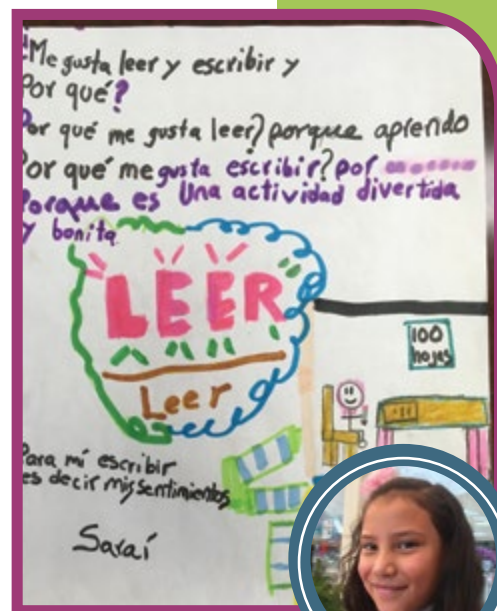 ¿Me gusta leer y escribir y
Por qué?
Por qué me gusta leer? porque aprendo
Por qué me gusta escribir? por
Porque es Una actividad divertida
y bonita
LEER
Leer
100
hojas
Para mí escribir
es decir mis sentimientos
Saraí